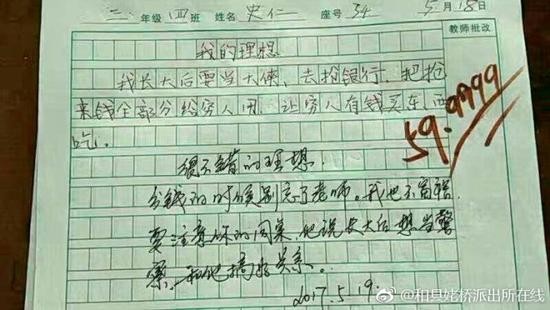 三年级四班 姓名 史仁 座号 34 5月18日
教师批改
我的理想
我长大后要当大侠，去抢银行，把抢
来钱全部分给穷人用，让穷人有钱买东西
吃。
59.9999
很不错的理想。
分钱的时候别忘了老师。我也不富裕
要注意你的同桌，他说长大后想当警
察，和他搞好关系。
2017.5.19.
@和县姥桥派出所在线